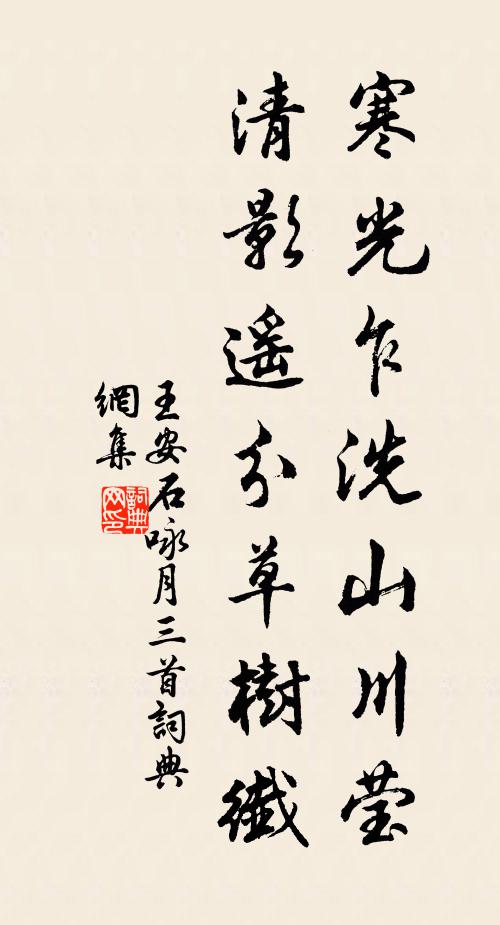 寒光乍洗山川莹
清影遥分草樹纖
王安石咏月三首詞典
網集
詞典
网印